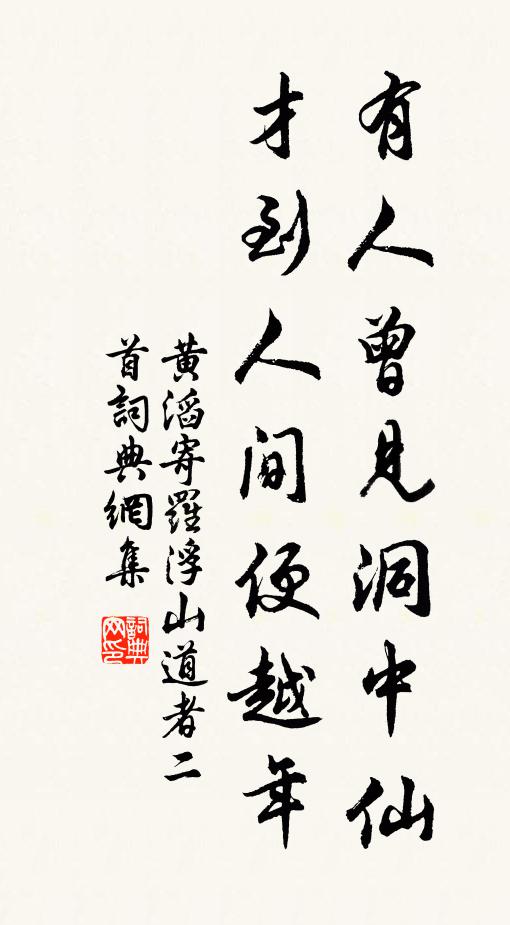 有人曾見洞中仙
才到人間便越年
黃滔寄羅浮山道者二
首詞典網集
詞典
网印